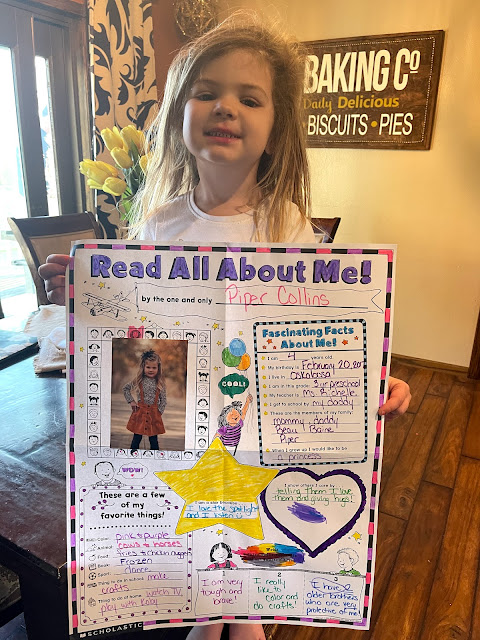 BAKING CO
Daily Delicious
BISCUITS • PIES
Read All About Me!
by the one and only Piper Collins
COOL!
Fascinating Facts
About Me!
I am 4 years old.
My birthday is February 20, 20
I live in Oskaloosa
I am in this grade: 3yr preschool
My teacher is Ms. Richelle
I get to school by my daddy
These are the members of my family:
mommy, daddy
Beau, Blaine
Piper
When I grow up I would like to be
a princess
I am a star because
I love the spotlight
and I listen
I show others I care by
telling them I love
them and giving hugs!
These are a few
of my
favorite things!
Color: pink & purple
Animal: cows & horses
Food: fries & chicken nuggets
Book: Frozen
Sport: dance
Thing to do in school: make
crafts
Thing to do at home: watch TV,
play with Koby
1
I am very
tough and
brave!
2
I really
like to
color and
do crafts!
3
I have 2
older brothers
who are very
protective of me!
SCHOLASTIC